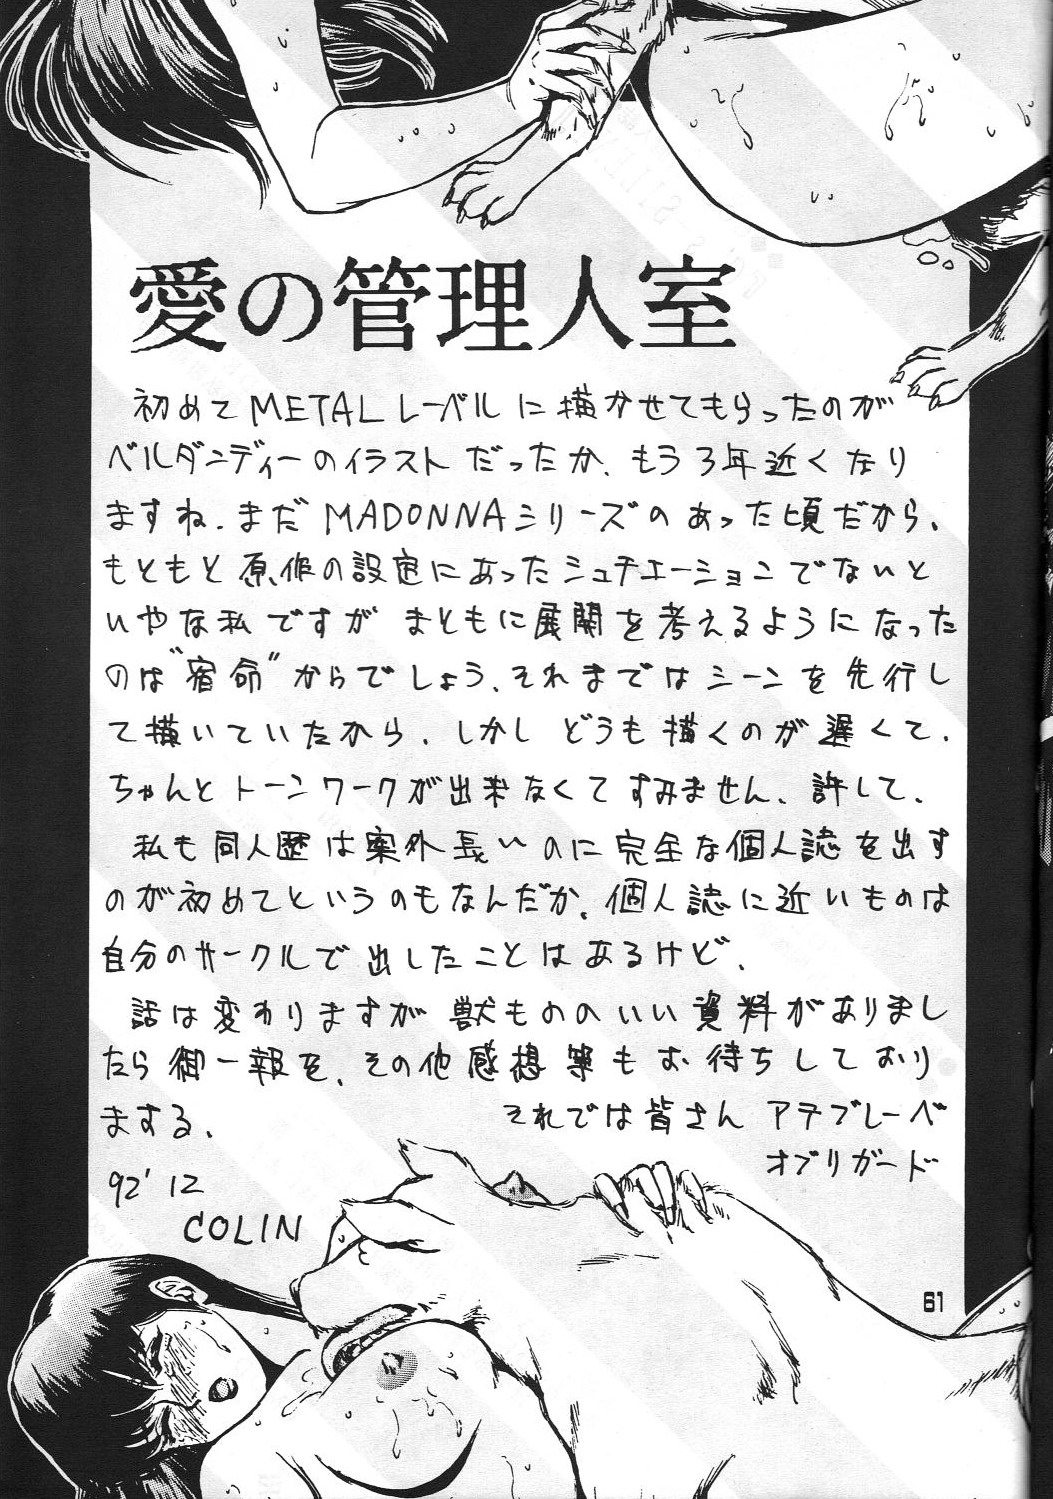 愛の管理人室
初めてMETALレーベルに描かせてもらったのが
ベルダンディーのイラストだったか、もう3年近くなり
ますね.まだMADONNAシリーズのあった頃だから、
もともと原作の設定にあったシュチエーションでないと
いやな私ですが まともに展開を考えるようになった
のは"宿命"からでしょう、それまではシーンを先行し
て描いていたから、しかし どうも描くのが遅くて、
ちゃんとトーンワークが出来なくてすみません、許して、
私も同人歴は案外長いのに完全な個人誌を出す
のが初めてというのもなんだか、個人誌に近いものは
自分のサークルで出したことはあるけど、
話は変わりますが獣もののいい資料がありまし
たら御一報を、その他感想等もお待ちしており
まする、 それでは皆さん アテブレーベ
オブリガード
92' 12
COLIN
61